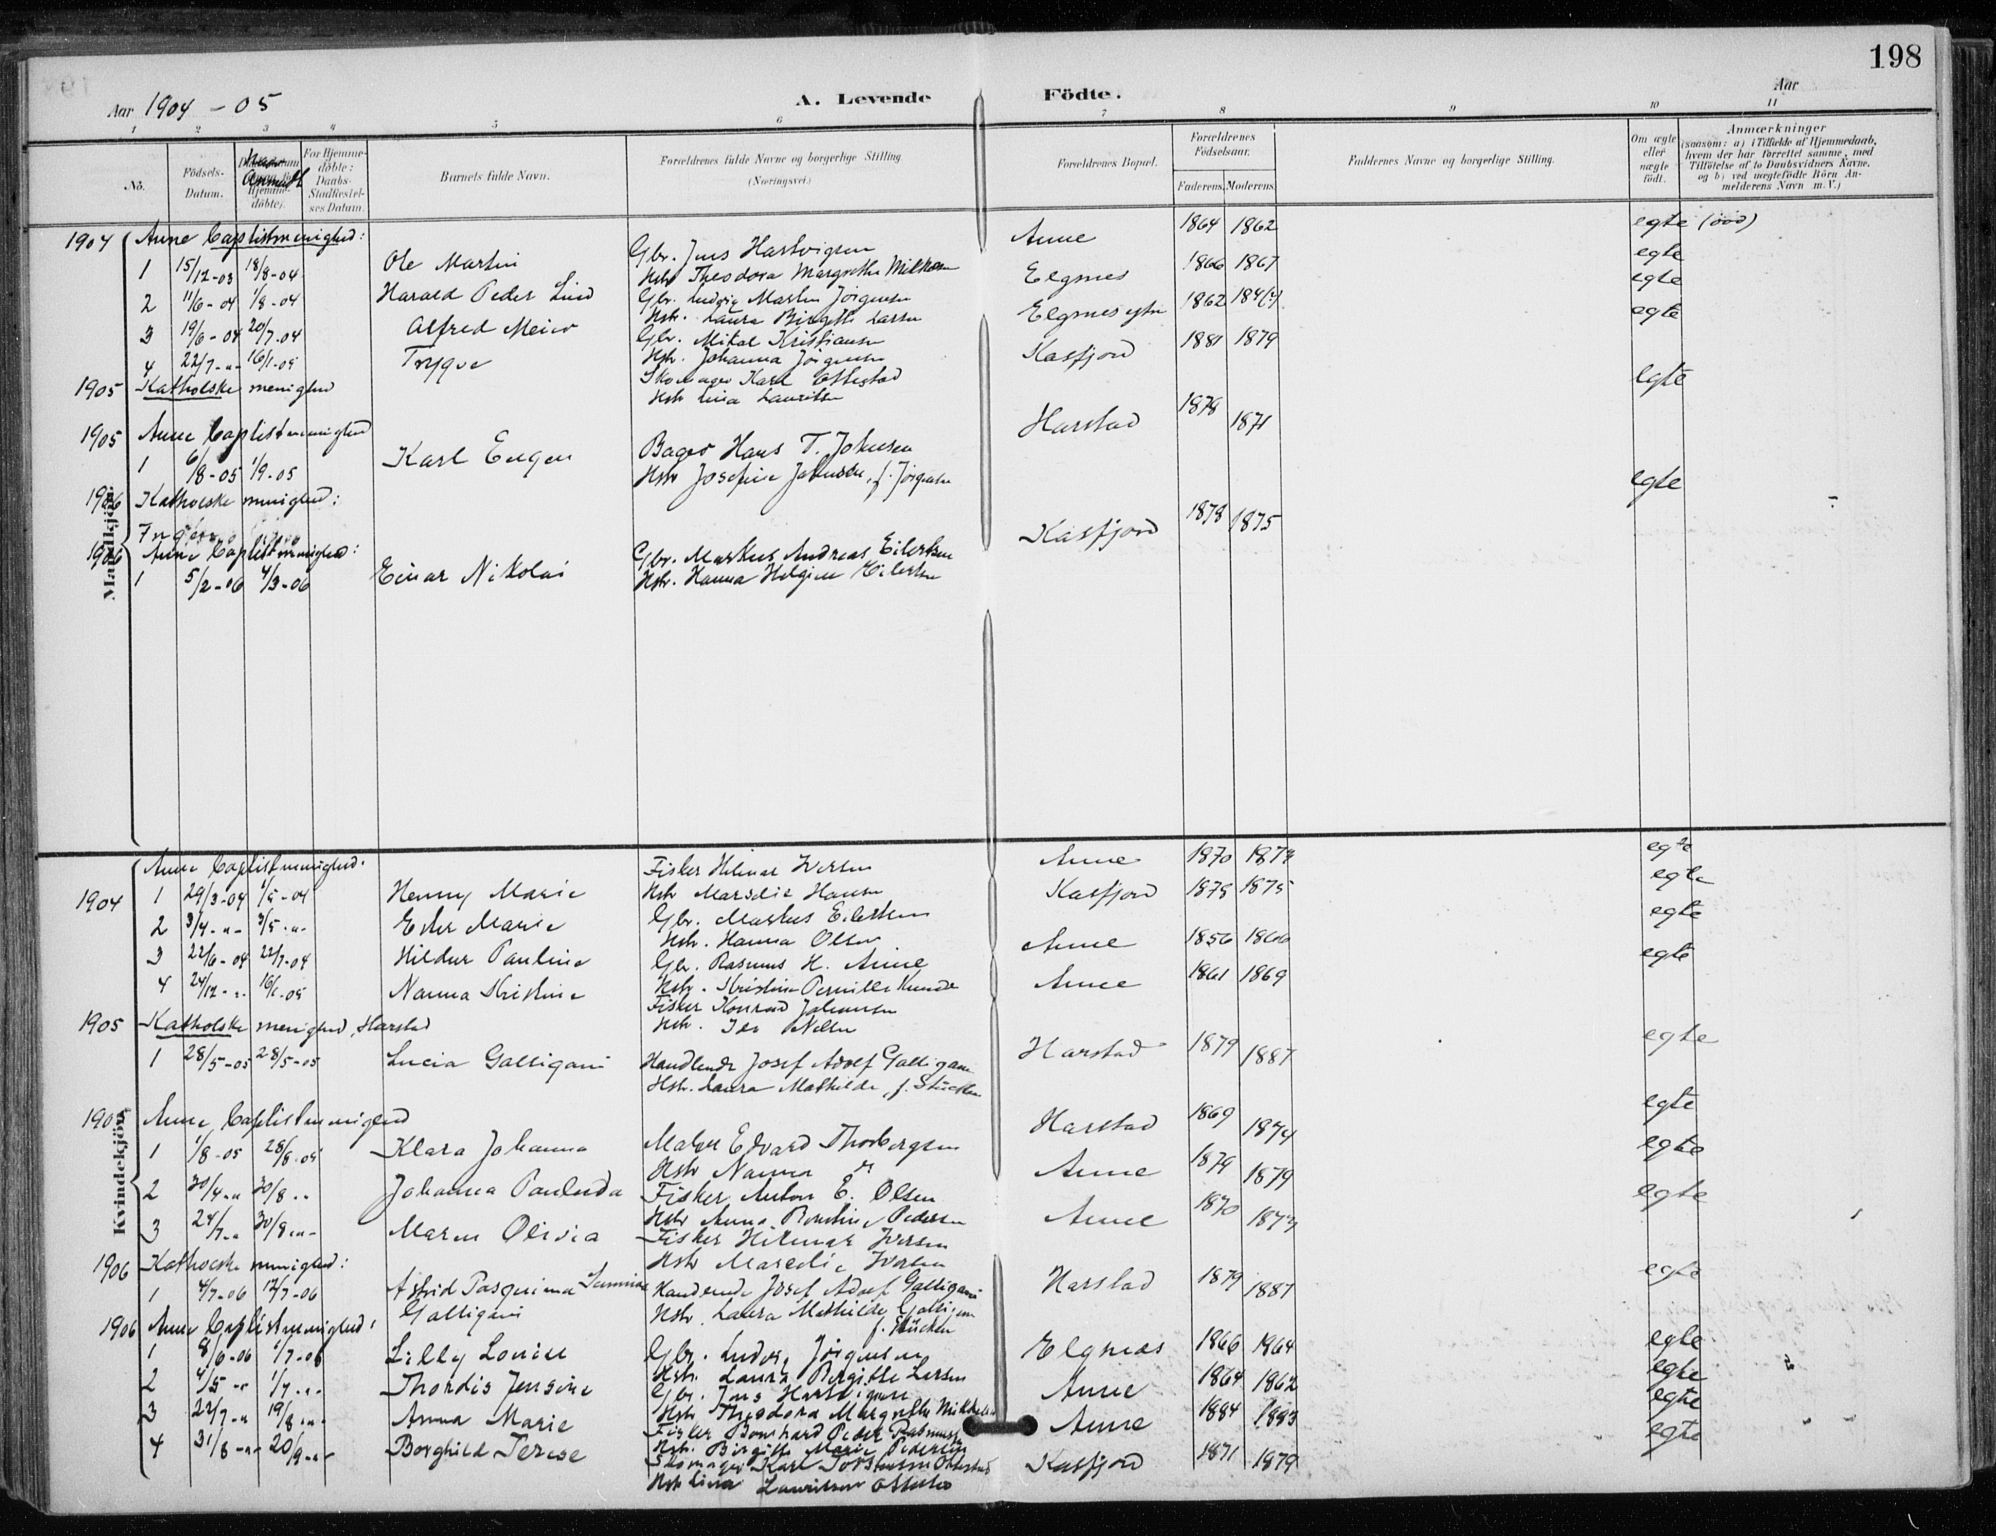 198
Aar 1904-05
A. Levende Födte.
Aar
1 2 3 4 5 6 7 8 9 10 11
Nô.
Födsels-Datum.
Anmeldt
For Hjemme-döbte: Daabs-Stadfæstel-ses Datum.
Barnets fulde Navn.
Forældrenes fulde Navne og borgerlige Stilling (Næringsvei.)
Forældrenes Bopæl.
Forældrenes Födselsaar.
Faderens. Moderens.
Faddernes Navne og borgerlige Stilling.
Om ægte eller uægte födt.
Anmærkninger
(saasom: a) i Tilfælde af Hjemmedaab, hvem der har forrettet samme, med Tilföielse af to Daabsvidners Navne, og b) ved uægtefödte Börn Anmelderens Navn m. V.)
Mandkjön.
1904 Anne Baptistmenighed:
1 15/12-03 18/8-04 Ole Martin Gbr. Jens Hartvigsen Hstr Theodora Margrethe Mikkelsen Anne 1864 1862 egte
2 11/6-04 1/8-04 Harald Peder Lind Gbr. Ludvig Martin Jörgensen Hstr. Laura Birgitte Larsen Elgsnes 1866 1867 egte
3 19/6-04 20/7-04 Alfred Meier Gbr. Mikal Kristiansen Hstr. Johanna Jörgensen Elgsnes ytre 1862 egte
4 22/7-"- 16/1-05 Trygve Skomager Karl Ottestad Hstr Lina Lauritsen Kasfjord 1881 1879 egte
1905 Katholske menighed
1905 Anne Baptistmenighed
1 6/8-05 1/9-05 Karl Eugen Bager Hans T. Johnsen Hstr Josefine Johnsen, f. Jörgensen Harstad 1878 1871 egte
1906 Katholske menighed:
Ingen
1906 Anne Baptistmenighed:
1 5/2-06 4/3-06 Einar Nikolai Gbr. Markus Andreas Eilertsen Hstr. Hanna Helgine Eilertsen Kasfjord 1878 1875 egte
Kvindekjön.
Anne Baptistmenighed.
1904 1 29/3-04 1/5-04 Henny Marie Fisker Hilmar Iversen Hstr Marselie Hansen Anne 1870 1873 egte
2 3/4-"- 3/5-"- Ester Marie Gbr. Markus Eilertsen Hstr. Hanna Olsen Kasfjord 1878 1875 egte
3 22/6-04 22/7-04 Hildur Pauline Gbr. Rasmus H. Anne Hstr. Kristine Pernille Anne 1856 1866 egte
4 24/12-"- 16/1-05 Nanna Kristine Fisker Konrad Johansen Hstr. Ida Nilsen Anne 1861 1869 egte
1905 Katholske menighed, Harstad
1 28/5-05 28/5-05 Lucia Galligani Handlende Josef Adolf Galligani Hstr. Laura Mathilde, f. Stücken Harstad 1879 1887 egte
1905 Anne Baptistmenighed
1 1/8-05 28/8-05 Klara Johanna Maler Edvard Thorbergsen Hstr Nanna Harstad 1869 1874 egte
2 30/4-"- 30/8-"- Johanna Paulinda Fisker Anton E. Olsen Hstr Anna Pedersen Anne 1879 1879 egte
3 24/7-"- 30/8-"- Maren Olivia Fisker Hilmar Iversen Hstr Marselie Iversen Anne 1870 1873 egte
1906 Katholske menighed:
1 4/7-06 17/7-06 Astrid Pasquina Galligani Handlende Josef Adolf Galligani Hstr. Laura Mathilde Galligani f. Stücken Harstad 1879 1887 egte
1906 Anne Baptistmenighed:
1 8/6-06 1/7-06 Lilly Louise Gbr. Ludvig Jörgensen Hstr. Laura Birgitte Larsen Elgsnes 1866 1864 egte
2 4/5-"- 1/7-"- Thordis Jensine Gbr. Jens Hartvigsen Hstr Theodora Margrethe Mikkelsen Anne 1864 1862 egte
3 22/7-"- 19/8-"- Anna Marie Fisker Bernhard Peder Rasmussen Hstr. Birgitte Marie Pedersen Anne 1884 1883 egte
4 31/8-"- 20/9-"- Borghild Terese Skomager Karl Torstensen Ottestad Hstr Lina Lauritsen Ottestad Kasfjord 1871 1879 egte